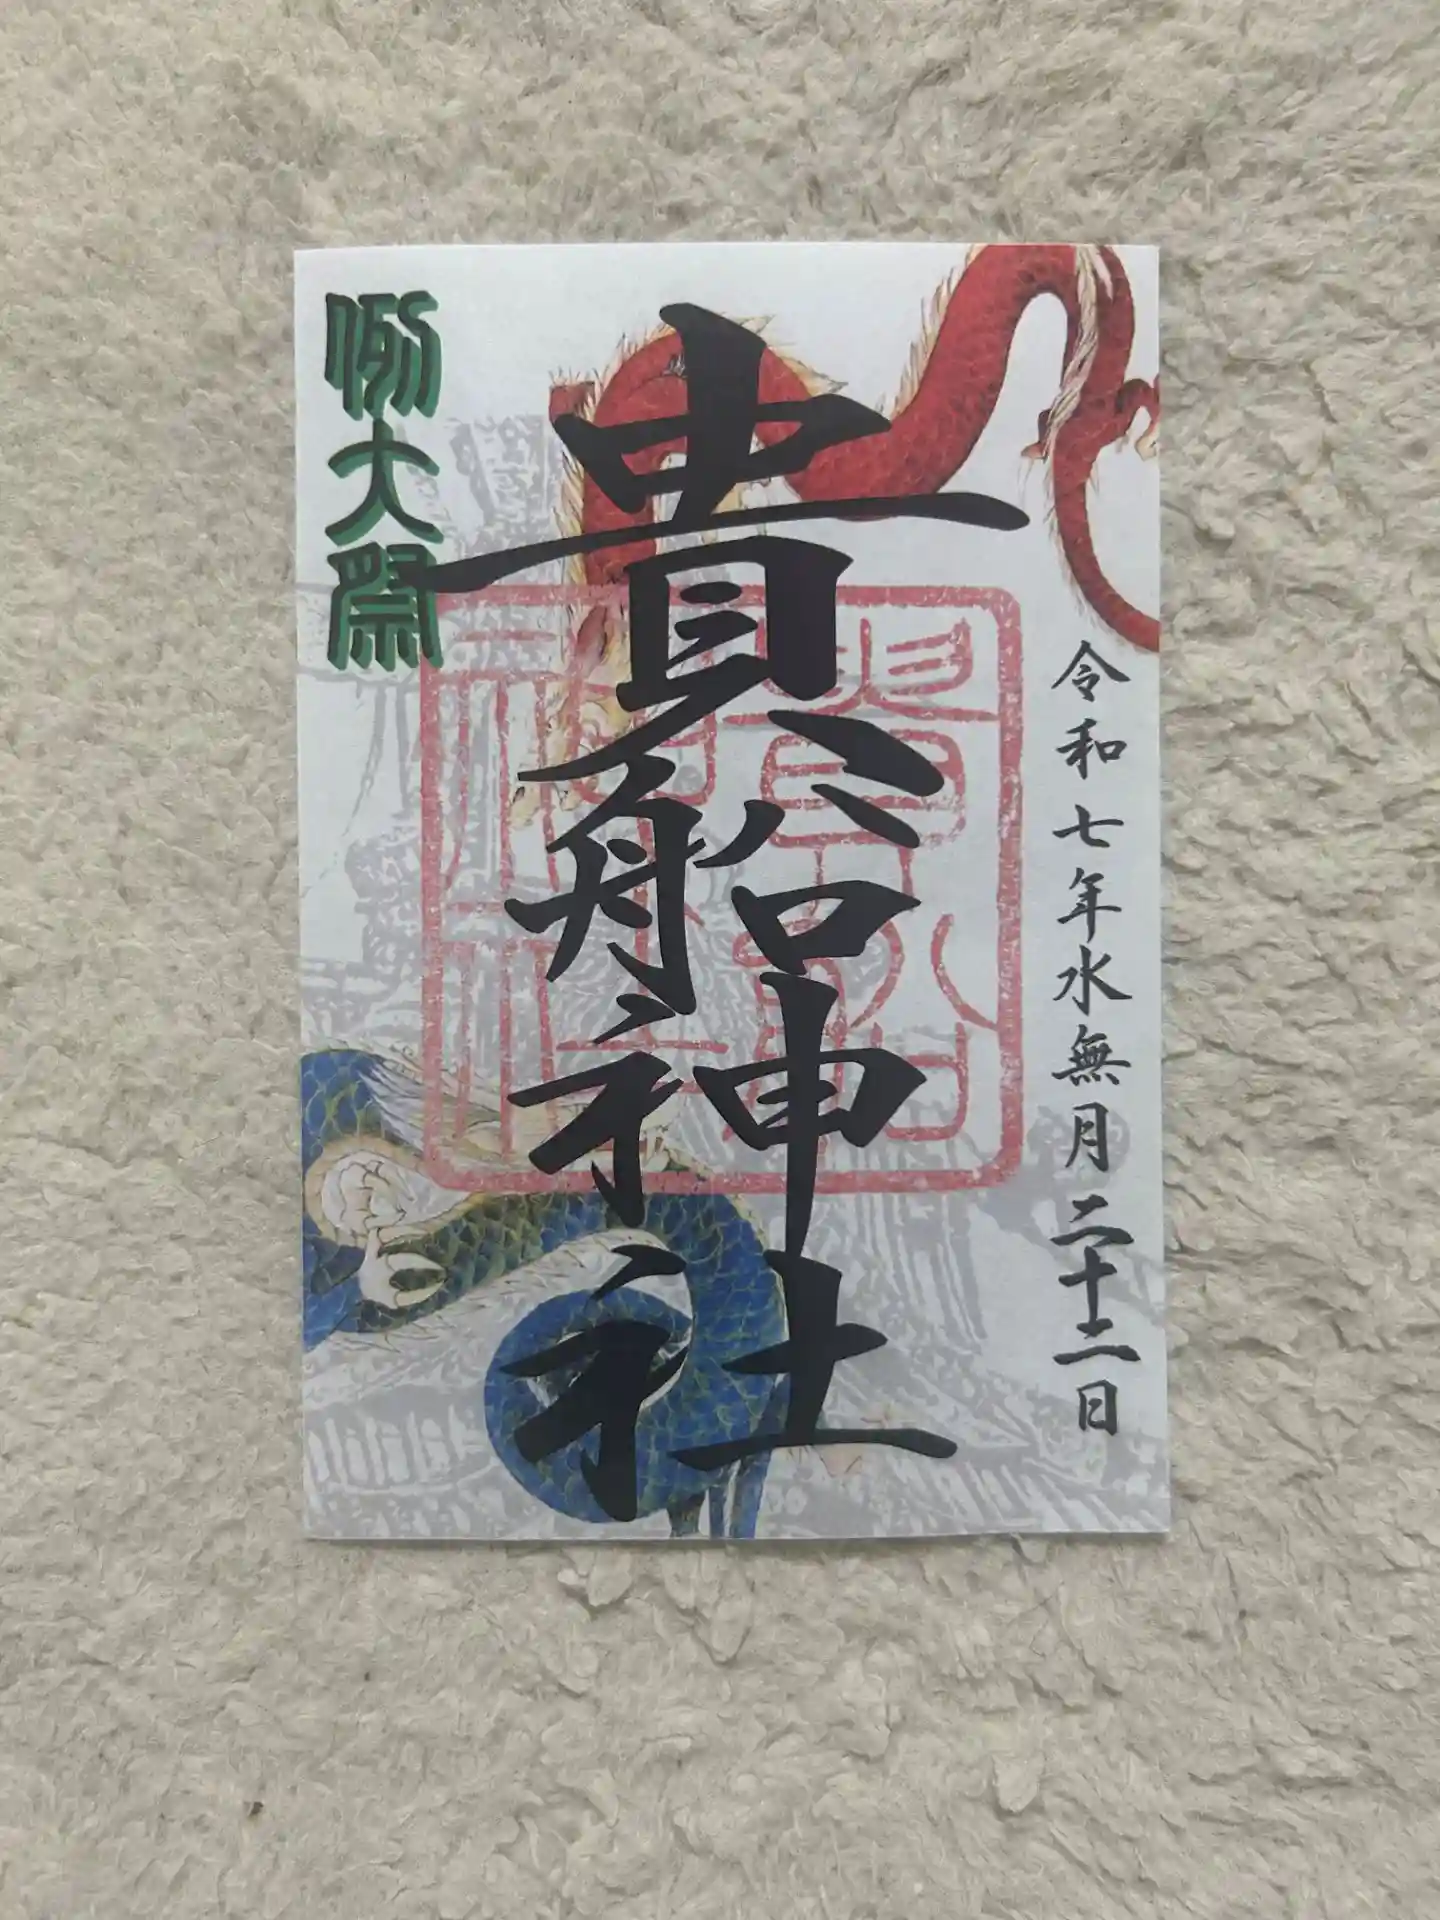 令和七年水無月二十二日
貴船神社
例大祭